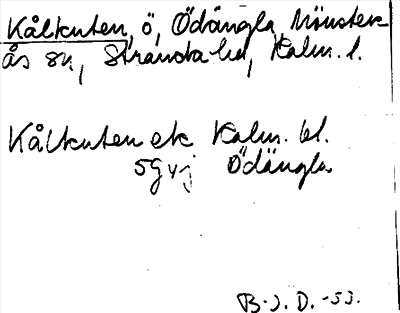 Kålkuten, ö, Ödängla, Mönster-
ås sn, Stranda hd, Kalm. l.
Kålkuten ek Kalm. bl.
5G vj Ödängla
B.J.D. -53.